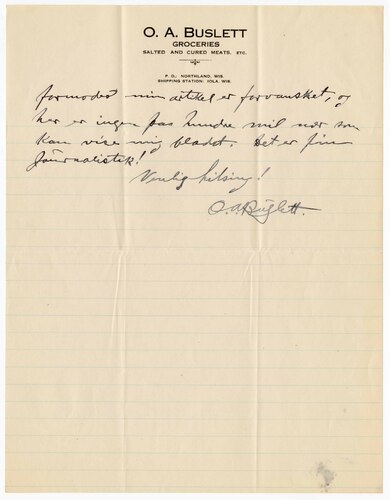 O. A. BUSLETT
GROCERIES
SALTED AND CURED MEATS, ETC.
P. O.: NORTHLAND, WIS.
SHIPPING STATION: IOLA, WIS.
formodet min artikel er forvansket, og
her er ingen paa hundre mil nær som
kan vise mig bladet. Det er fin
Journalistik!
Venlig hilsing!
O. A. Buslett.